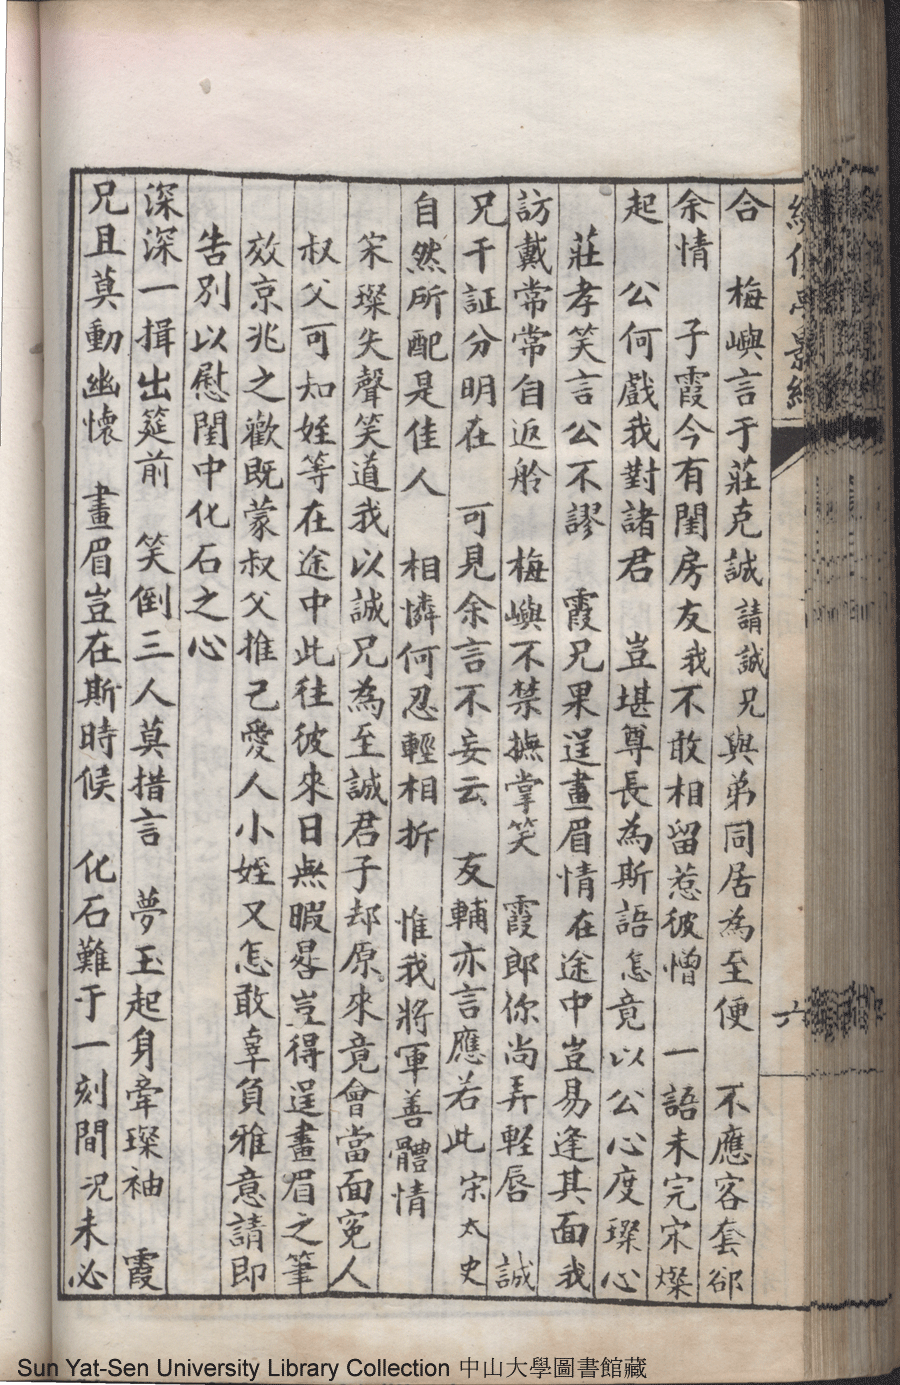 六
合　梅嶼言于莊克誠請誠兄與弟同居為至便　不應客套郤
余情　子霞今有閨房友我不敢相留惹彼憎　一語未完宋燦
起　公何戲我對諸君　豈堪尊長為斯語怎竟以公心度璨心
莊孝笑言公不謬　霞兄果逞畫眉情在途中豈易逢其面我
訪戴常常自返舲　梅嶼不禁撫掌笑　霞郎你尚弄輕唇　誠
兄干証分明在　可見余言不妄云　友輔亦言應若此宋太史
自然所配是佳人　相憐何忍輕相折　惟我將軍善體情
宋璨失聲笑道我以誠兄為至誠君子却原來竟會當面寃人
叔父可知姪等在途中此往彼來日無暇晷豈得逞畫眉之筆
效京兆之歡既蒙叔父推己愛人小姪又怎敢辜負雅意請即
告別以慰閨中化石之心
深深一揖出筵前　笑倒三人莫措言　夢玉起身牽璨袖　霞
兄且莫動幽懷　畫眉豈在斯時候　化石難于一刻間況未必
Sun Yat-Sen University Library Collection 中山大學圖書館藏